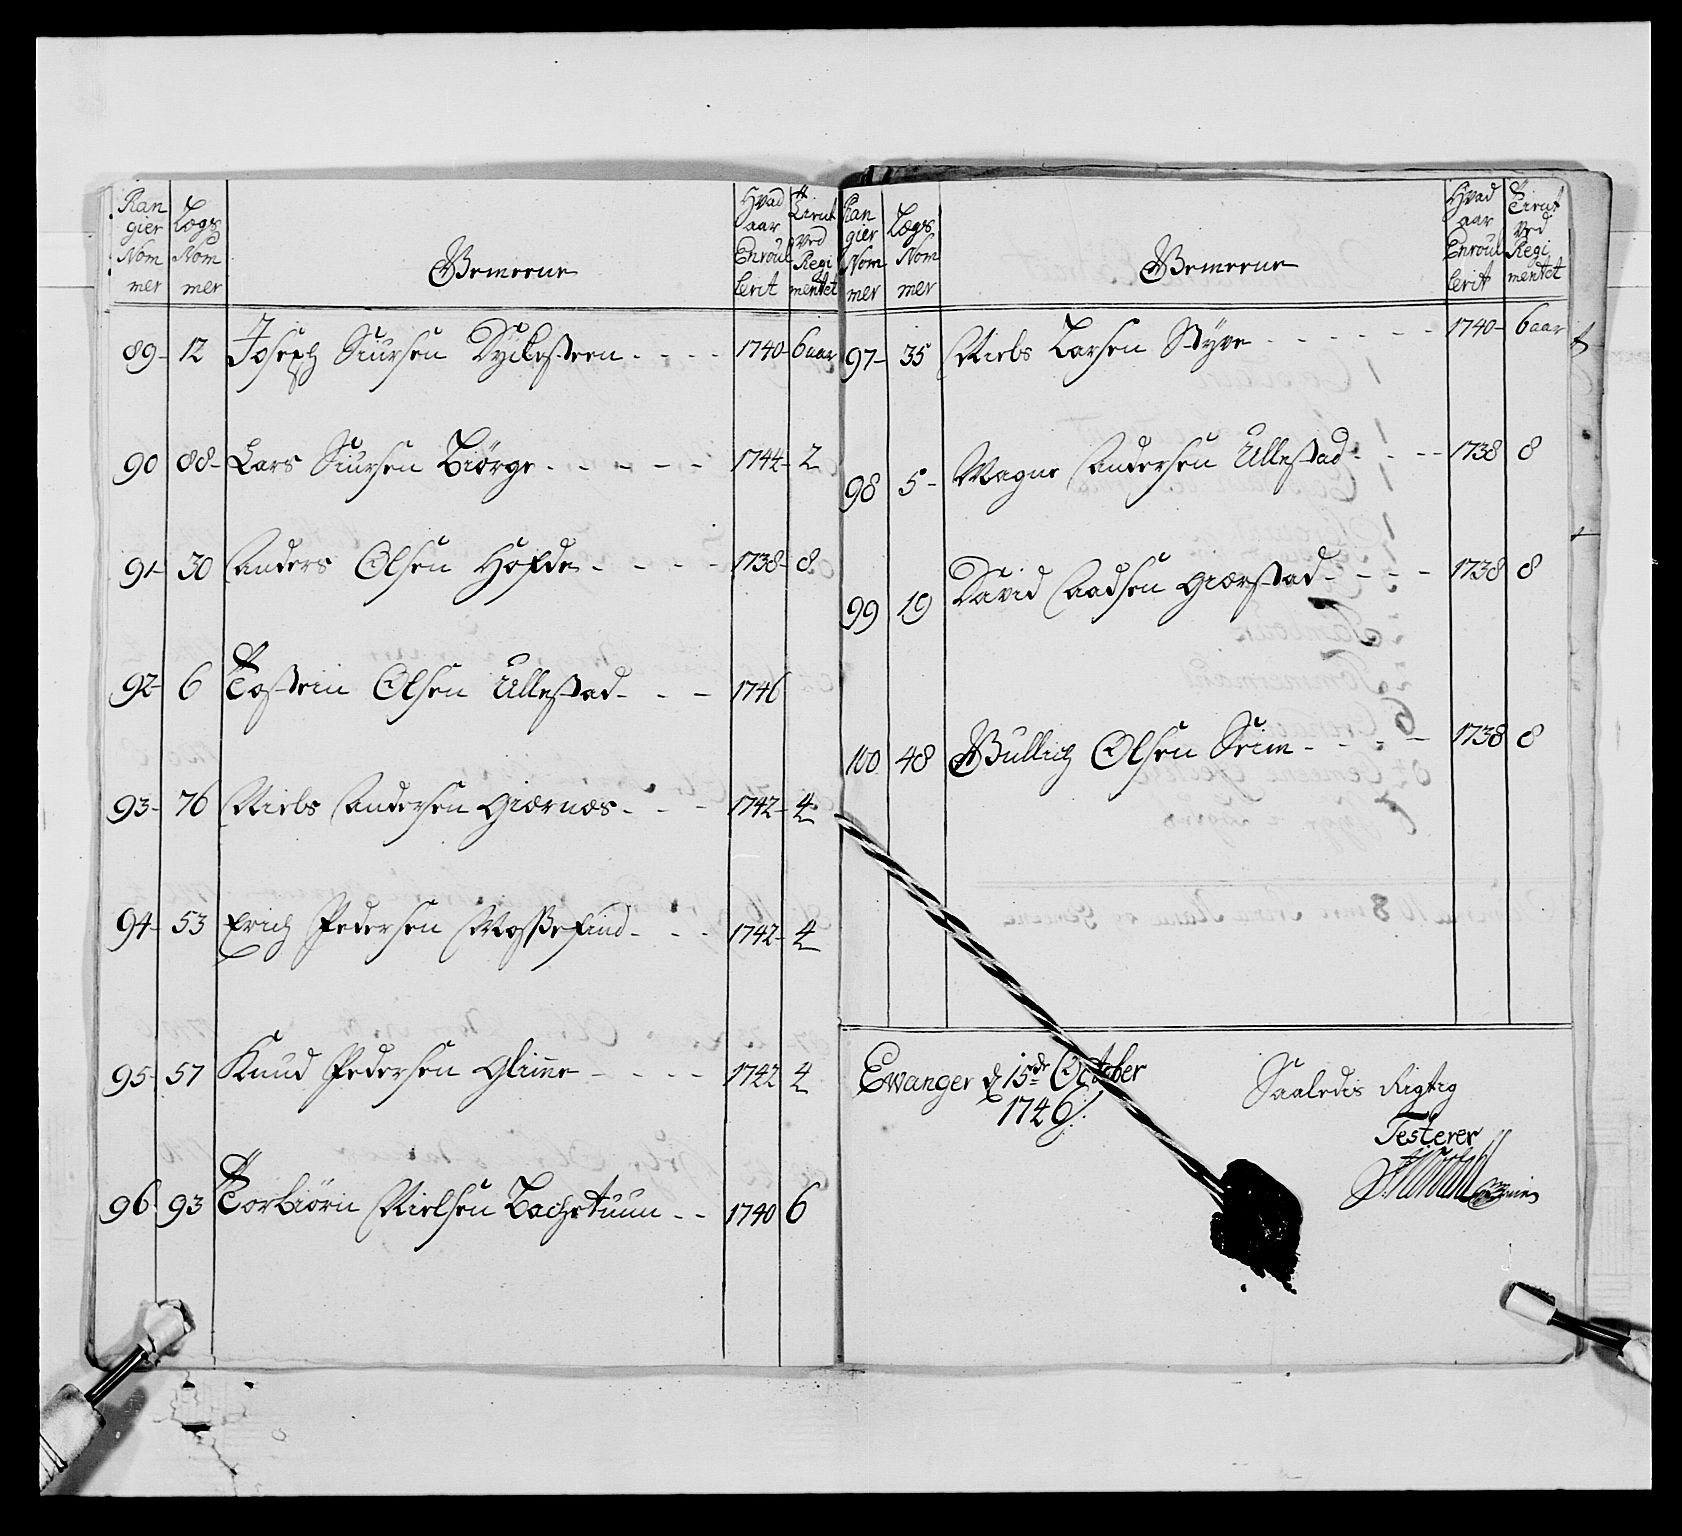 Ran
gier
Nom
mer
Lægs
Nom
mer
Gemeene
Hvad
aar
Enroul
lerit
Tient
ved
Regi
mentet
89- 12 Joseph Siursen Dyckesteen - - - - 1740- 6 aar
90 88- Lars Siursen Biørge - - - - - 1744- 2
91- 30 Anders Olsen Hofde - - - - 1738- 8
92- 6 Tostein Olsen Ullestad - - - 1746
93- 76 Niels Andersen Giærnæs - - - 1742- 4
94- 53 Erich Pedersen Mossefind - - - 1742- 4
95- 57 Knud Pedersen Glimme - - - - 1742 4
96 93 Torbiørn Nielsen Bachetuun - - 1740 6
Ran
gier
Nom
mer
Lægs
Nom
mer
Gemeene
Hvad
aar
Enroul
lerit
Tient
ved
Regi
mentet
97- 35 Niels Larsen Styve - - - - - - 1740- 6 aar
98 5- Magne Andersen Ullestad - - - - 1738 8
99 19 David Aadsen Giærstad - - - - 1738 8
100 48 Gullich Olsen Seim - - - - 1738 8
Ewanger d 15de October
1746
Saaledis Rigtig
Testerer